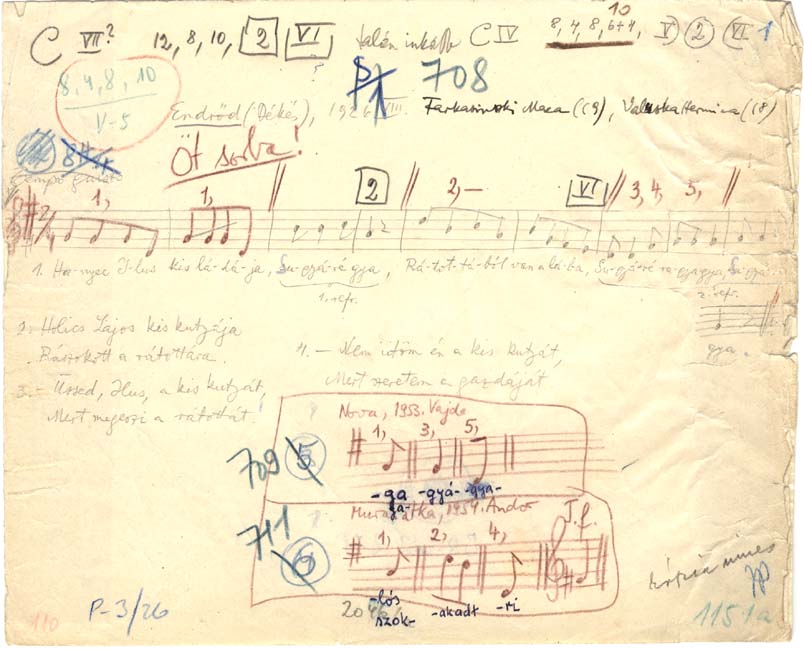 10
C VII? 12, 8, 10, 2 VI talán inkább C IV 8, 4, 8, 6+4, V 2 VI 1
8, 4, 8, 10
V-5
P1 708
Endrőd (Békés), 1926. VIII. Valuska Hermina (18)
8+4
Öt sorba!
1, 1, 2 2,— VI 3, 4, 5,
2/4
1. Hor-nyec I-lus kis lá-dá-ja, Su-gyá-ré gya, Rá-tot-tá-ból van a lá-ba, Su-gyá-ré
1. refr.
2. refr.
gya.
2. Holics Lajos kis kutyája
Rászokott a rátottára.
3. – Üssed, Ilus, a kis kutyát,
Mert megeszi a rátottát.
4. – Nem ütöm én a kis kutyát,
Mert szeretem a gazdáját
Nova, 1953. Vajda
709 5 1, 3, 5,
-ga -gyá- -gya-
ga-
Murarátka, 1954. Andor
711 6 1, 2, 4, J.f.
-lós -akadt -ri
szok-
110 P-3/26 1151a